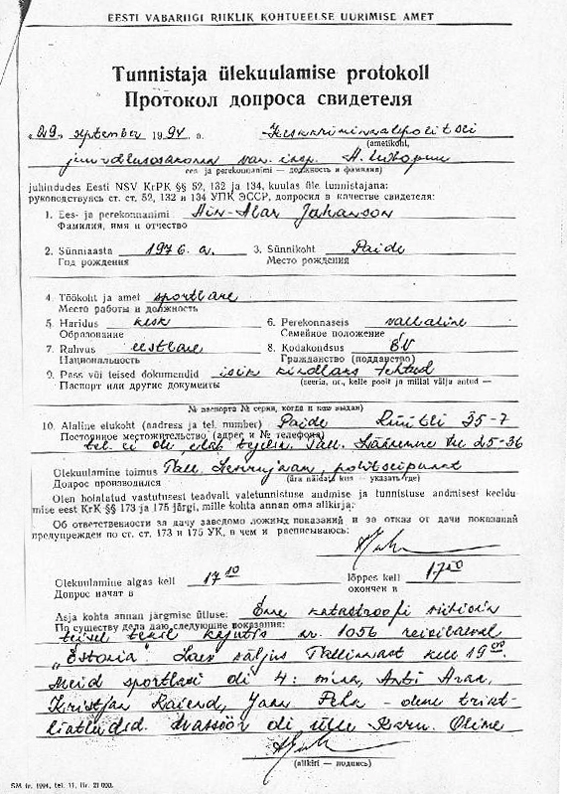 EESTI VABARIIGI RIIKLIK KOHTUEELSE UURIMISE AMET
Tunnistaja ülekuulamise protokoll
Протокол допроса свидетеля
"29." september 1994 a. Keskkriminaalpolitsei
(ametikoht,
juurdlusosakonna van. insp.
ees ja perekonnanimi — должность и фамилия)
juhindudes Eesti NSV KrPK §§ 52, 132 ja 134, kuulas üle tunnistajana:
руководствуясь ст. ст. 52, 132 и 134 УПК ЭССР, допросил в качестве свидетеля:
1. Ees- ja perekonnanimi Ain-Alar Juhanson
Фамилия, имя и отчество
2. Sünniaasta 1976. a. 3. Sünnikoht Paide
Год рождения Место рождения
4. Töökoht ja amet sportlane
Место работы и должность
5. Haridus kesk 6. Perekonnaseis vallaline
Образование Семейное положение
7. Rahvus eestlane 8. Kodakondsus EV
Национальность Гражданство (подданство)
9. Pass või teised dokumendid isik kindlaks tehtud
Паспорт или другие документы (seeria, nr., kelle poolt ja millal välja antud —
№ паспорта № серии, когда и кем выдан)
10. Alaline elukoht (aadress ja tel. number) Paide Rüütli 35-7
Постоянное местожительство (адрес и № телефона)
tel. ei ole, elab Tall. Läänemere tee 25-36
Ülekuulamine toimus Tall. Lennujaam, politseipunkt
Допрос производился (ära näidata kus — указать где)
Olen hoiatatud vastutusest teadvalt valetunnistuse andmise ja tunnistuse andmisest keeldumise eest KrK §§ 173 ja 175 järgi, mille kohta annan oma allkirja:
Об ответственности за дачу заведомо ложных показаний и за отказ от дачи показаний
предупрежден по ст. ст. 173 и 175 УК, в чем и расписываюсь:
Ülekuulamine algas kell 17 10 lõppes kell
Допрос начат в окончен в
Asja kohta annan järgmise ütluse: Enne katastroofi viibisin
По существу дела даю следующие показания:
teisel tekil kajutis nr. 1056 reisilaeval
„Estonia". Laev väljus Tallinnast kell 19 00.
Meid sportlasi oli 4: mina, Anti Arak,
Kristjan Raiend, Jaan Pehk - oleme triat-
liatleedid. Massöör oli Ülle Karu. Olime
(allkiri — подпись)
SM tr. 1994, tel. 11, Nr. 21 000.